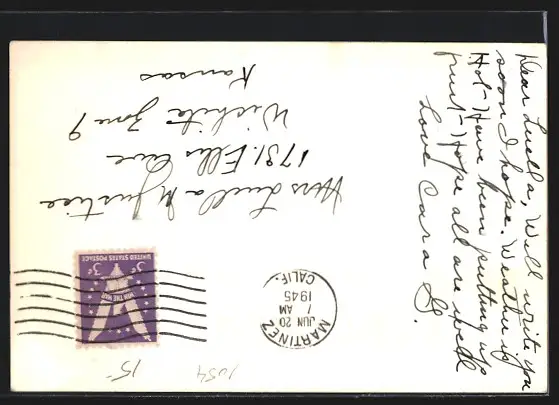 Dear Luella, Will write you
soon I hope. Weather is
Hot- Have been putting up
fruit- Hope all are well
Love Cara G.
Mrs Luella M Justice
1731. Ellis Ave
Wichita Zone 9
Kansas
MARTINEZ
JUN 20
7 AM
1945
CALIF.
UNITED STATES POSTAGE
3¢ 3¢
WIN THE WAR
15-
1054